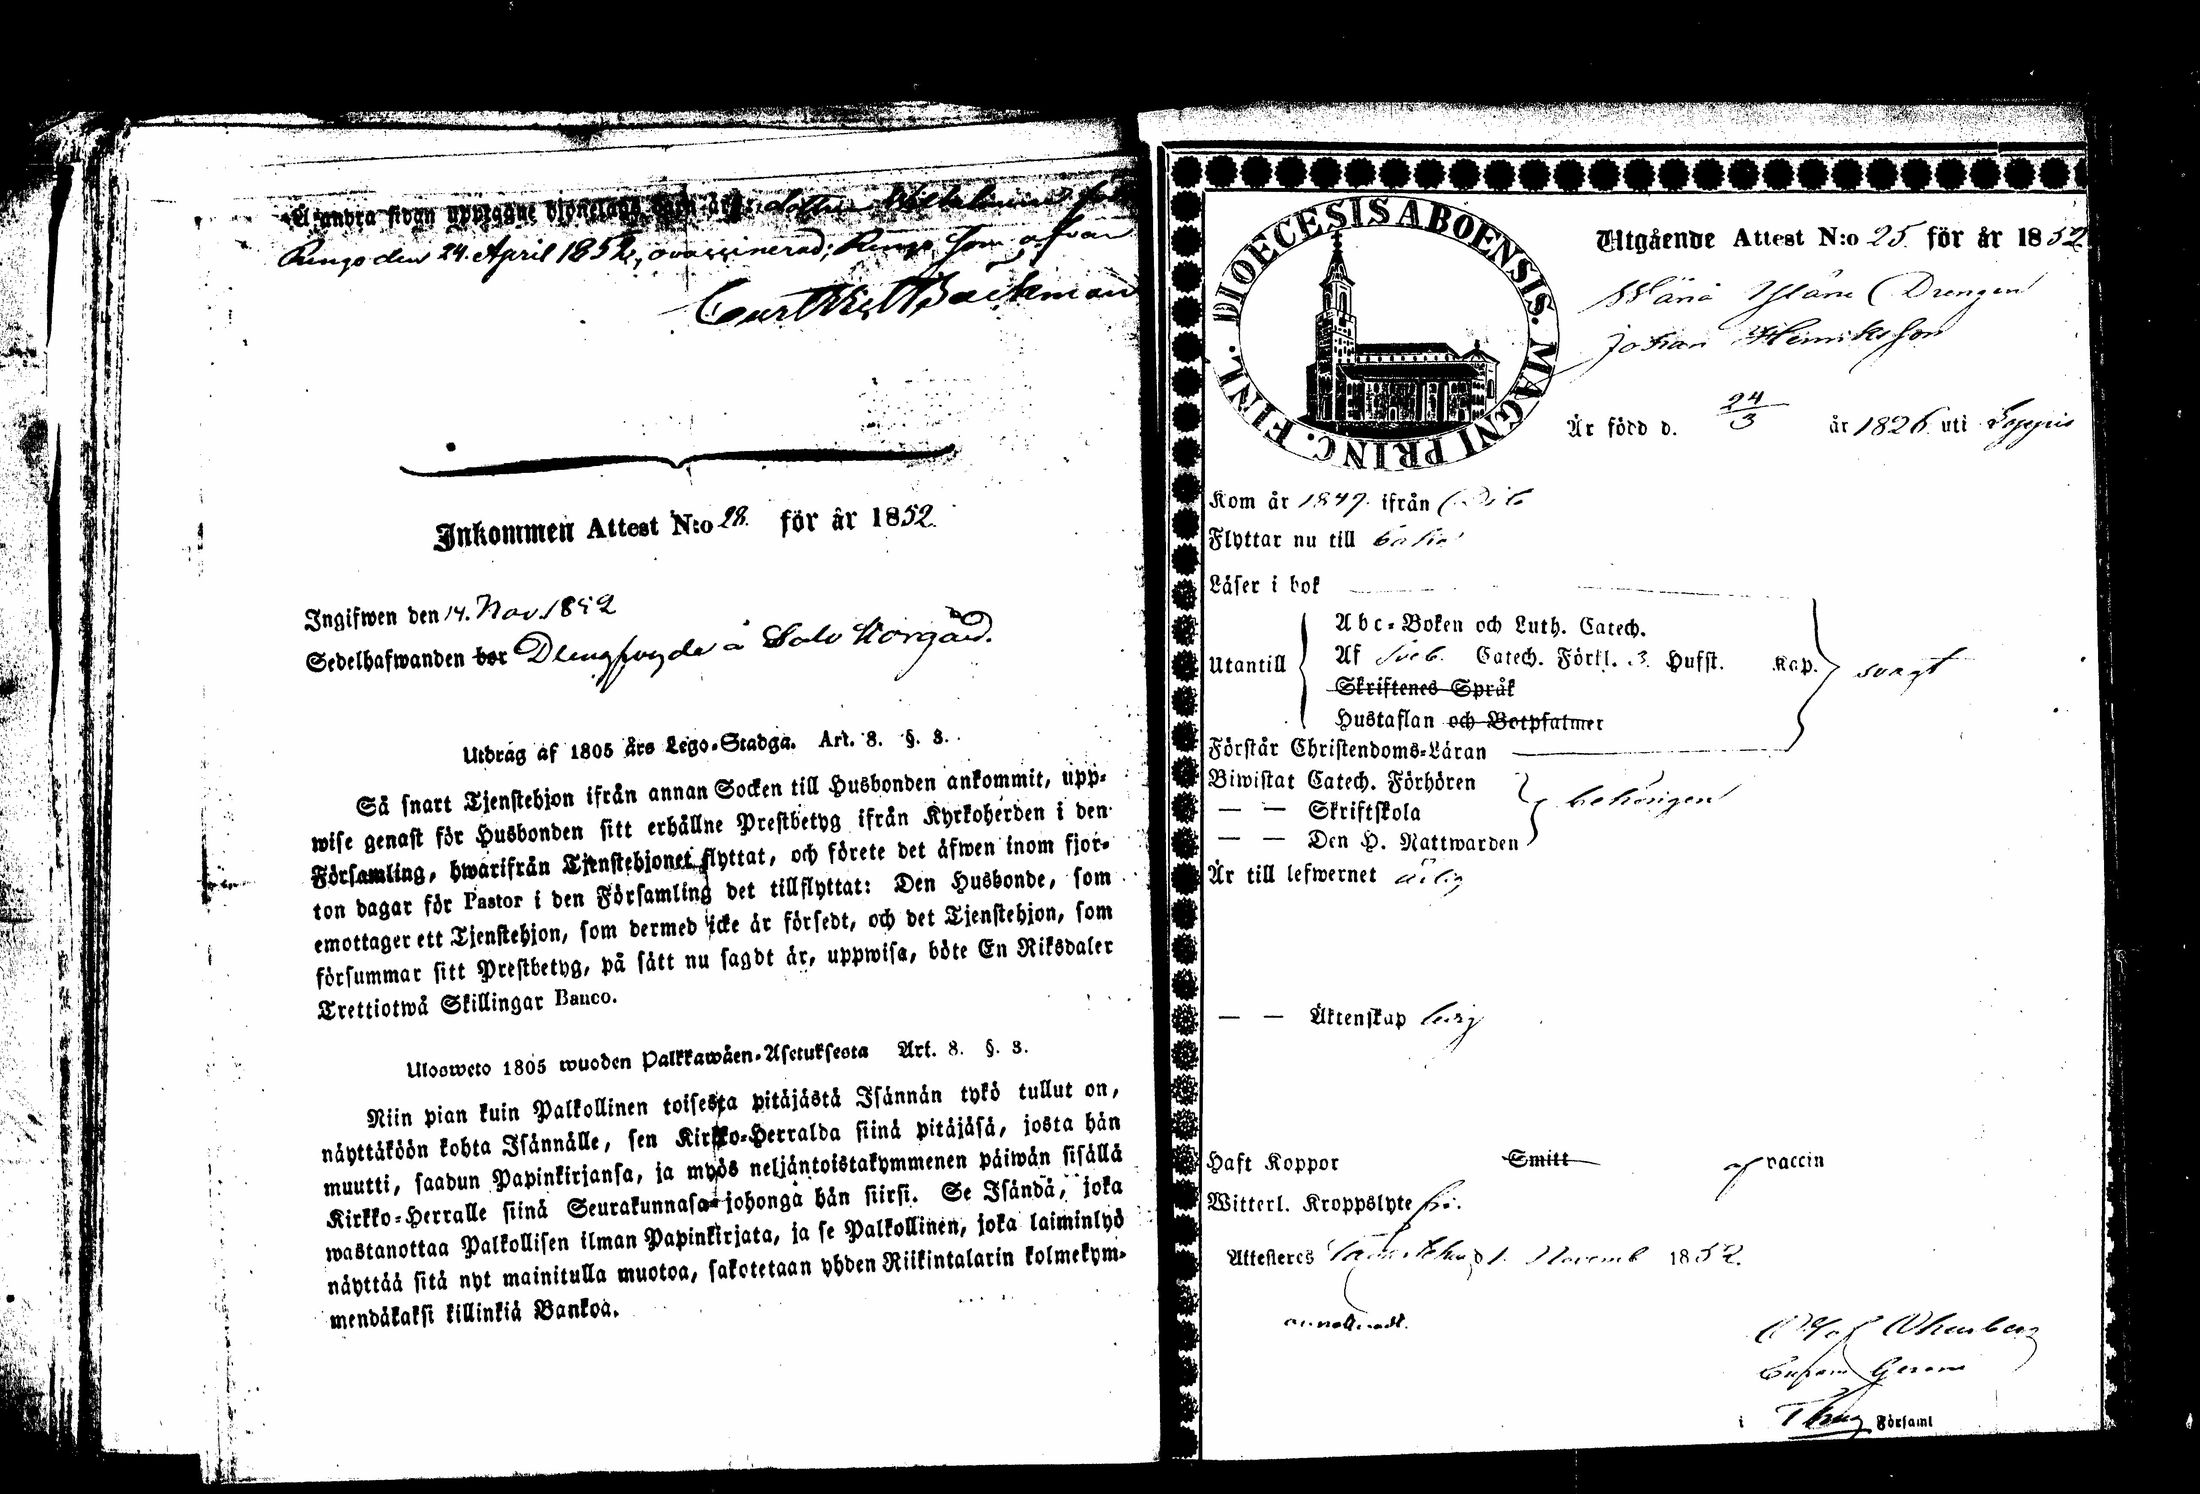 Å andra sidan upptagne hjonelag dottren Wilhelmina
den 24. April 1852, ovaccinerad;
Inkommen Attest N:o 28. för år 1852.
Ingifwen den 14. Nov. 1852
Sedelhafwanden bor å Salo Korgård.
Utdrag af 1805 års Lego-Stadga. Art. 8. §. 3.
Så snart Tjenstehjon ifrån annan Socken till Husbonden ankommit, upp-
wise genast för Husbonden sitt erhållne Prestbetyg ifrån Kyrkoherden i den
Församling, hwarifrån Tjenstehjonet flyttat, och förete det äfwen inom fjor-
ton dagar för Pastor i den Församling det tillflyttat: Den Husbonde, som
emottager ett Tjenstehjon, som dermed icke är försedt, och det Tjenstehjon, som
försummar sitt Prestbetyg, på sätt nu sagdt är, uppwisa, böte En Riksdaler
Trettiotwå Skillingar Banco.
Ulosweto 1805 wuoden Palkkawäen-Asetuksesta Art. 8. §. 3.
Niin pian kuin Palkollinen toisesta pitäjästä Isännän tykö tullut on,
näyttäköön kohta Isännälle, sen Kirkko-Herralda siinä pitäjäsä, josta hän
muutti, saadun Papinkirjansa, ja myös neljäntoistakymmenen päiwän sisällä
Kirkko-Herralle siinä Seurakunnasa johonga hän siirsi. Se Isändä, joka
wastanottaa Palkollisen ilman Papinkirjata, ja se Palkollinen, joka laiminlyö
näyttää sitä nyt mainitulla muotoa, sakotetaan yhden Riikintalarin kolmekym-
mendäkaksi killinkiä Bankoa.
DIOECESIS ABOENSIS. MAGNI PRINC. FINL.
Utgående Attest N:o 25. för år 1852
Drengen
Johan Henriksson
Är född d. 24/3 år 1826. uti Letppis
Kom år 1847. ifrån
Flyttar nu till
Läser i bok
Utantill
Abc-Boken och Luth. Catech.
Af Sveb. Catech. Förkl. 3. Hufst. Kap.
svagt
Skriftenes Språk
Hustaflan och Botpsalmer
Förstår Christendoms-Läran
Biwistat Catech. Förhören
— — Skriftskola
behörigen
— — Den H. Nattwarden
Är till lefwernet ärlig
— — Äktenskap ledig
Haft Koppor Smitt af vaccin
Witterl. Kroppslyte fri.
Attesteras d 1. Novemb 1852.
i Församl